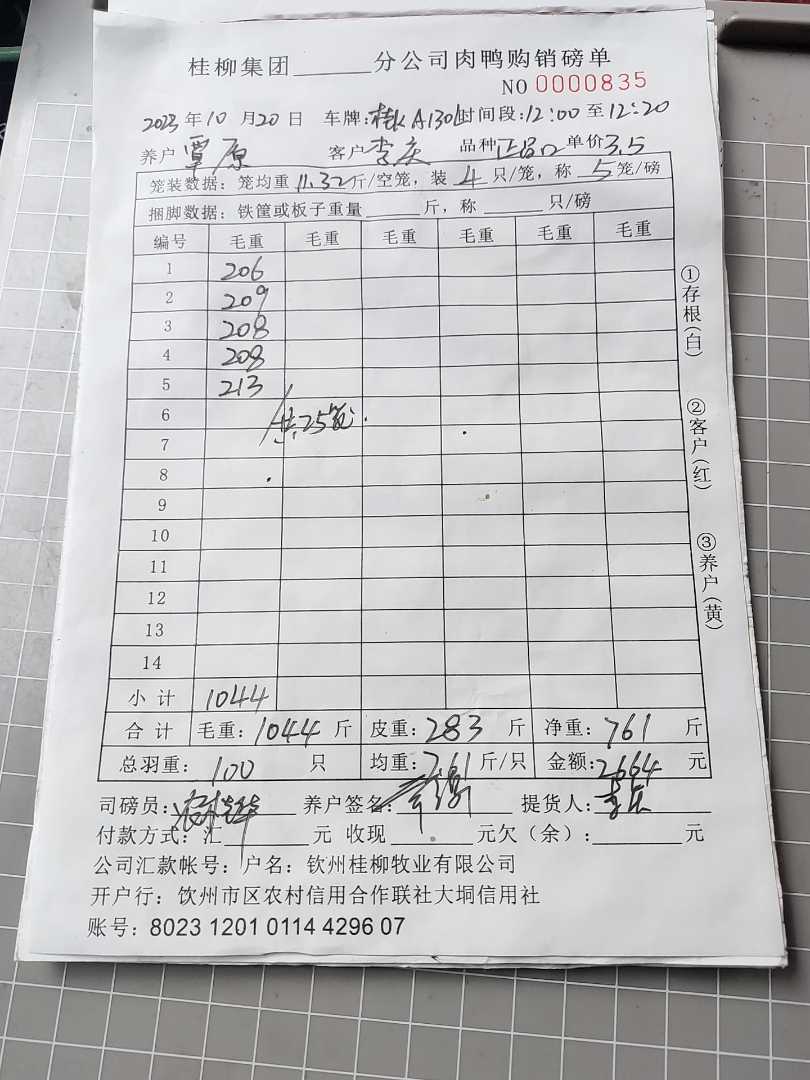 桂柳集团______分公司肉鸭购销磅单
NO 0000835
2023年10月20日 车牌:桂K A130 时间段:12:00至12:20
养户 覃原 客户 李庆 品种 正品 单价3.5
笼装数据: 笼均重 11.32斤/空笼, 装 4 只/笼, 称 5 笼/磅
捆脚数据: 铁筐或板子重量______斤, 称______只/磅
编号 毛重 毛重 毛重 毛重 毛重 毛重
1 206
2 209
3 208
4 208
5 213
6 共25笼.
7
8
9
10
11
12
13
14
小计 1044
合计 毛重: 1044 斤 皮重: 283 斤 净重: 761 斤
总羽重: 100 只 均重: 7.61 斤/只 金额: 2664 元
司磅员: 养户签名: 提货人: 李庆
付款方式: 汇______元 收现______元欠(余): ______元
公司汇款帐号: 户名: 钦州桂柳牧业有限公司
开户行: 饮州市区农村信用合作联社大垌信用社
账号: 8023 1201 0114 4296 07
①存根(白)
②客户(红)
③养户(黄)